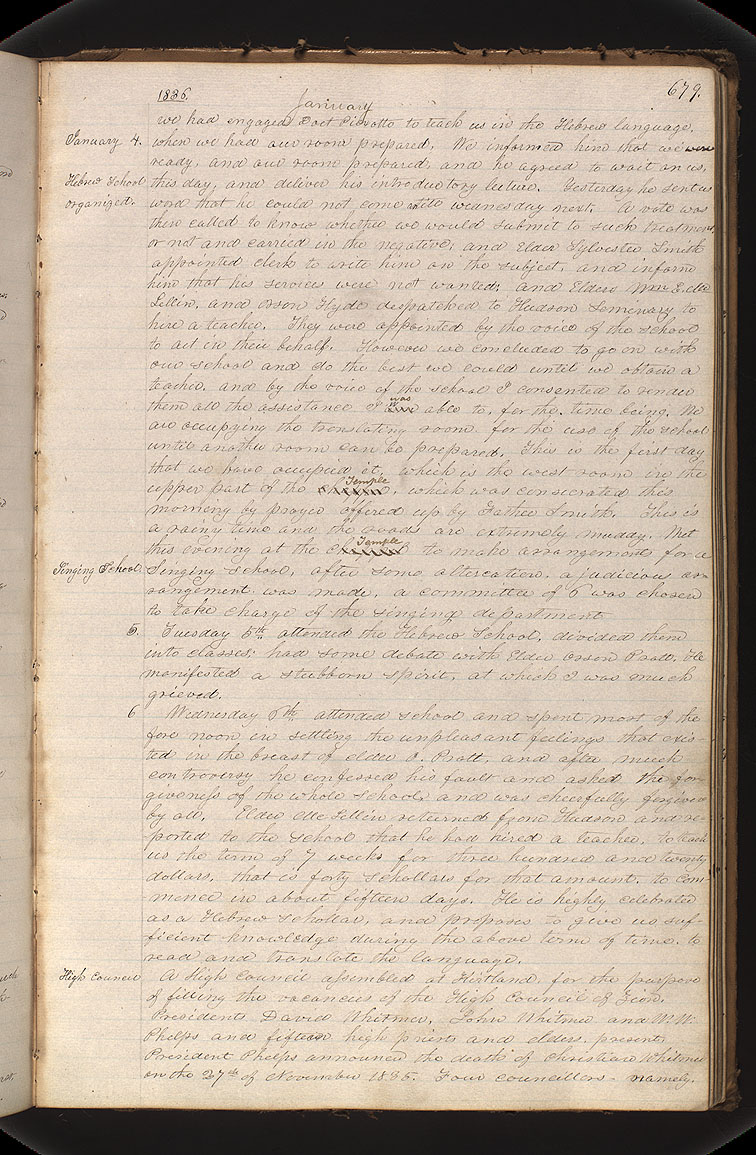 1836.
679.
January
we had engaged Doct Piexotto to teach us in the Hebrew language,
January 4. when we had our room prepared. We informed him that we were
ready, and our room prepared, and he agreed to wait on us,
Hebrew School this day, and deliver his introductory lecture. Yesterday he sent us
organized. word that he could not come until wednesday next. A vote was
then called to know whether we would submit to such treatment
or not and carried in the negative; and Elder Sylvester Smith
appointed clerk to write him on the subject, and inform
him that his services were not wanted; and Elders Wm E. Mc
Lellin, and Orson Hyde despatched to Hudson Seminary to
hire a teacher. They were appointed by the voice of the school
to act in their behalf. However we concluded to go on with
our school and do the best we could until we obtain a
teacher, and by the voice of the school I consented to render
them all the assistance I was able to, for the time being. We
are occupying the translating room for the use of the school
until another room can be prepared. This is the first day
that we have occupied it, which is the west room in the
upper part of the Temple, which was consecrated this
morning by prayer offered up by Father Smith. This is
a rainy time and the roads are extremely muddy. Met
this evening at the Temple to make arrangements for a
Singing School Singing School, after some altercation, a judicious ar-
rangement was made, a committee of 6 was chosen
to take charge of the singing department
5. Tuesday 5th attended the Hebrew School, divided them
into classes; had some debate with Elder Orson Pratt, He
manifested a stubborn spirit, at which I was much
grieved.
6 Wednesday 6th attended school and spent most of the
fore noon in settling the unpleasant feelings that exis-
ted in the breast of elder O. Pratt, and after much
controversy he confessed his fault and asked the for-
giveness of the whole school, and was cheerfully forgiven
by all. Elder McLellin returned from Hudson and re-
ported to the school that he had hired a teacher, to teach
us the term of 7 weeks for three hundred and twenty
dollars, that is forty schollars for that amount, to com-
mence in about fifteen days. He is highly celebrated
as a Hebrew schollar, and proposes to give us suf-
ficient knowledge during the above term of time, to
read and translate the language.
High Council A High Council assembled at Kirtland, for the purpose
of filling the vacancies of the High Council of Zion.
Presidents David Whitmer, John Whitmer and W. W.
Phelps and fifteen high priests and elders present.
President Phelps announced the death of Christian Whitmer
on the 27th of November 1835. Four councillors - namely.